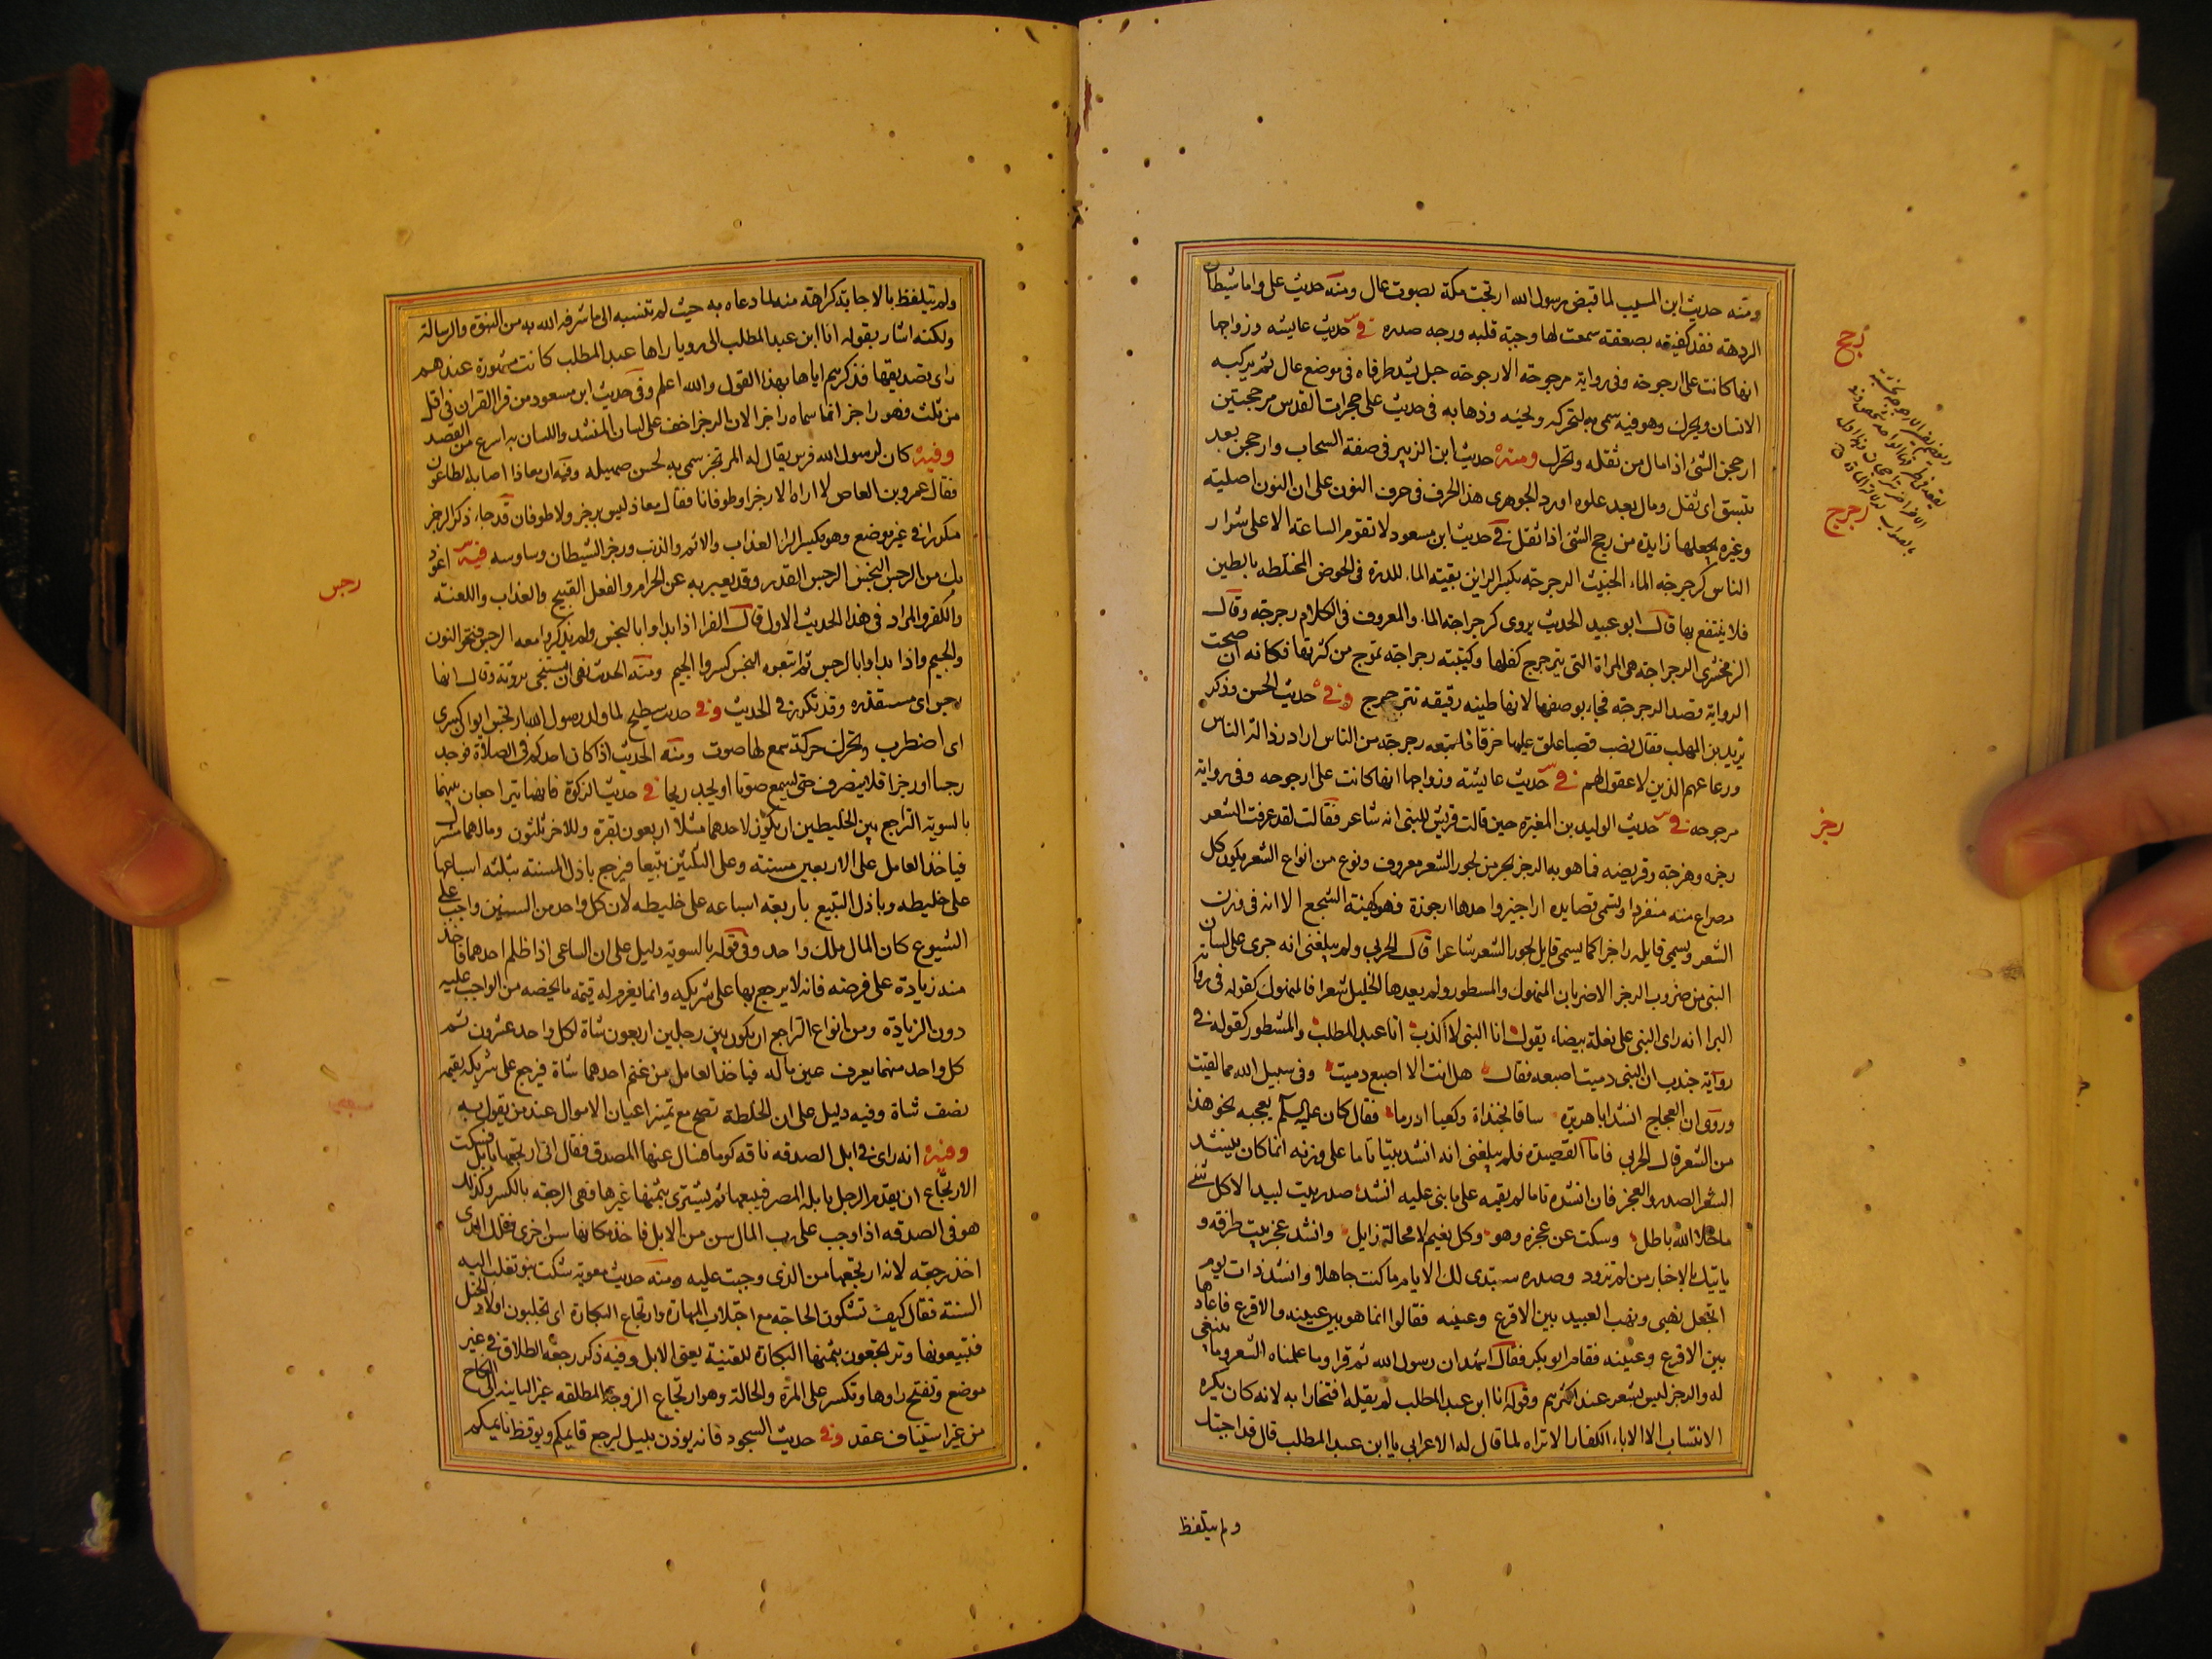 ومنه حديث ابن المسيب لما قبض رسول الله ارتجت مكة بصوت عال ومنه حديث على واما شيطان
الردهة فقد كفيته بصعقة سمعت لها وجبة قلبه ورجه صدره في حديث عايشه وزواجها
انها كانت على ارجوحة وفى رواية مرجوحة الارجوحة حبل يشد طرفاه فى موضع عال ثم يركبه
الانسان ويحرك وهو فيه سمى به لتحركه ومجيئه وذهابه فى حديث على حجرات القدس مرجحنين
ارجحن الشئ اذا مال من ثقله وتحرك ومنه حديث ابن الزبير فى صفة السحاب وارجحن بعد
تبسق اى ثقل ومال بعد علوه اورد الجوهرى هذا الحرف فى حرف النون على ان النون اصلية
وغيره يجعلها زايدة من رجح الشئ اذا ثقل في حديث ابن مسعود لا تقوم الساعة الا على شرار
الناس كرجرجة الماء الخبيث الرجرجة بكسر الرائين بقية الماء الكدرة فى الحوض المختلطه بالطين
فلا ينتفع بها قال ابو عبيد الحديث يروى كرجراجة الماء والمعروف فى الكلام رجرجة وقال
الزمخشرى الرجراجة هى المراة التى يترجرج كفلها وكتيبة رجراجة تموج من كثرتها فكانه ان صحت
الرواية قصد الرجرجة فجاء بوصفها لانها طينة رقيقه تترجرج وفي حديث الحسن وذكر
يزيد بن المهلب فقال نصب قصبا علق عليها خرقا فاتبعه رجرجة من الناس اراد رذالة الناس
ورعاعهم الذين لا عقول لهم في حديث عايشة وزواجها انها كانت على ارجوحه وفى رواية
مرجوحه في حديث الوليد بن المغيرة حين قالت قريش للنبى انه شاعر فقالت لقد عرفت الشعر
رجزه وهزجه وقريضه فما هو به الرجز بحر من بحور الشعر معروف ونوع من انواع الشعر يكون كل
مصراع منه منفردا وتسمى قصايده اراجيز واحدها ارجوزة فهو كهيئة السجع الا انه فى وزن
الشعر ويسمى قايله راجزا كما يسمى قايل بحور الشعر شاعرا قال الحربى ولم يبلغنى انه جرى على لسان
النبى من ضروب الرجز الا ضربان المنهوك والمشطور ولم يعدها الخليل شعرا فالمنهوك كقوله فى رواية
البرا انه راى النبى على بغلة بيضاء يقول انا النبى لا كذب انا عبد المطلب والمشطور كقوله في
رواية جندب ان النبى دميت اصبعه فقال هل انت الا اصبع دميت وفى سبيل الله ما لقيت
وروى ان العجاج انشد ابا هريرة ساقا بخنداة وكعبا ادرما فقال كان عليه السلم يعجبه نحو هذا
من الشعر قال الحربى فاما القصيدة فلم يبلغنى انه انشد بيتا تاما على وزنه انما كان ينشد
الشعر الصدر والعجز فان انشده تاما لم يقمه على ما بنى عليه انشد صدر بيت لبيد الا كل شئ
ما خلا الله باطل وسكت عن عجزه وهو وكل نعيم لا محالة زايل وانشد عجز بيت طرفه و
ياتيك بالاخبار من لم تزود وصدره ستبدى لك الايام ما كنت جاهلا وانشد ذات يوم
اتجعل نهبى ونهب العبيد بين الاقرع وعيينه فقالوا انما هو بين عيينه والاقرع فاعادها
بين الاقرع وعيينه فقام ابو بكر فقال اشهد ان رسول الله ثم قرا وما علمناه الشعر وما ينبغى
له والرجز ليس بشعر عند اكثرهم وقوله انا ابن عبد المطلب لم يقله افتخارا به لانه كان يكره
الانتساب الى الاباء الكفار الا تراه لما قال له الاعرابى يا ابن عبد المطلب قال قد اجبتك
ولم يتلفظ
رجح
رجرج
رجز
ولم يتلفظ بالاجابة كراهة منه لما دعاه به حيث لم تنسبه الى ما شرفه الله به من النبوة والرسالة
ولكنه اشار بقوله انا ابن عبد المطلب الى رويا راها عبد المطلب كانت مشهورة عندهم
راى تصديقها فذكرهم اياها بهذا القول والله اعلم وفى حديث ابن مسعود من قرا القران فى اقل
من ثلث فهو راجز انما سماه راجزا لان الرجز اخف على لسان المنشد واللسان به اسرع من القصد
وفيه كان لرسول الله فرس يقال له المرتجز سمى به لحسن صهيله وفيه ان معاذا اصابه الطاعون
فقال عمرو بن العاص لا اراه الا رجزا وطوفانا فقال معاذ ليس برجز ولا طوفان قد جاء ذكر الرجز
مكررا في غير موضع وهو بكسر الرا العذاب والاثم والذنب ورجز الشيطان وساوسه فيه اعوذ
بك من الرجس النجس الرجس القدر وقد يعبر به عن الحرام والفعل القبيح والعذاب واللعنة
والكفر والمراد فى هذا الحديث الاول قال الفرا اذا بداوا بالنجس ولم يذكروا معه الرجس فتحوا النون
والجيم واذا بداوا بالرجس ثم اتبعوه النجس كسروا الجيم ومنه الحديث نهى ان يستنجى بروثة وقال انها
رجس اى مستقذره وقد تكرر في الحديث وفي حديث سطيح لما ولد رسول الله ارتجس ايوان كسرى
اى اضطرب وتحرك حركة سمع لها صوت ومنه الحديث اذا كان احدكم فى الصلاة فوجد
رجسا او رجزا فلا ينصرف حتى يسمع صوتا او يجد ريحا في حديث الزكوة فانهما يتراجعان بينهما
بالسوية التراجع بين الخليطين ان يكون لاحدهما مثلا اربعون بقرة وللاخر ثلثون ومالهما مشترك
فياخذ العامل على الاربعين مسنة وعلى الثلثين تبيعا فيرجع باذل المسنة بثلثة اسباعها
على خليطه وباذل التبيع باربعة اسباعه على خليطه لان كل واحد من السنين واجب على
الشيوع كان المال ملك واحد وفى قوله بالسوية دليل على ان الساعى اذا ظلم احدهما فاخذ
منه زيادة على فرضه فانه لا يرجع بها على شريكه وانما يغرم له قيمة ما يخصه من الواجب عليه
دون الزيادة ومن انواع التراجع ان يكون بين رجلين اربعون شاة لكل واحد عشرون ثم
كل واحد منهما يعرف عين ماله فياخذ العامل من غنم احدهما شاة فيرجع على شريكه بقيمة
نصف شاة وفيه دليل على ان الخلطة تصح مع تميز اعيان الاموال عند من يقول به
وفيه انه راى في ابل الصدقه ناقه كوما فسال عنها المصدق فقال انى ارتجعتها بابل فسكت
الارتجاع ان يقدم الرجل بابله المصر فيبيعها ثم يشترى بثمنها غيرها فهى الرجعة بالكسر وكذلك
هو فى الصدقه اذا وجب على رب المال سن من الابل فاخذ مكانها سن اخرى فتلك التى
اخذ رجعة لانه ارتجعها من الذى وجبت عليه ومنه حديث معوية شكت بنو تغلب اليه
السنة فقال كيف تشكون الحاجة مع اجتلاب المهارة وارتجاع البكارة اى تجلبون اولاد الخيل
فتبيعونها وترتجعون بثمنها البكارة للقنية يعنى الابل وفيه ذكر رجعة الطلاق في غير
موضع وتفتح راوها وتكسر على المرة والحالة وهو ارتجاع الزوجة المطلقه غير الباينة الى النكاح
من غير استيناف عقد وفي حديث السجود فانه يوذن بليل ليرجع قايمكم ويوقظ نايمكم
رجس